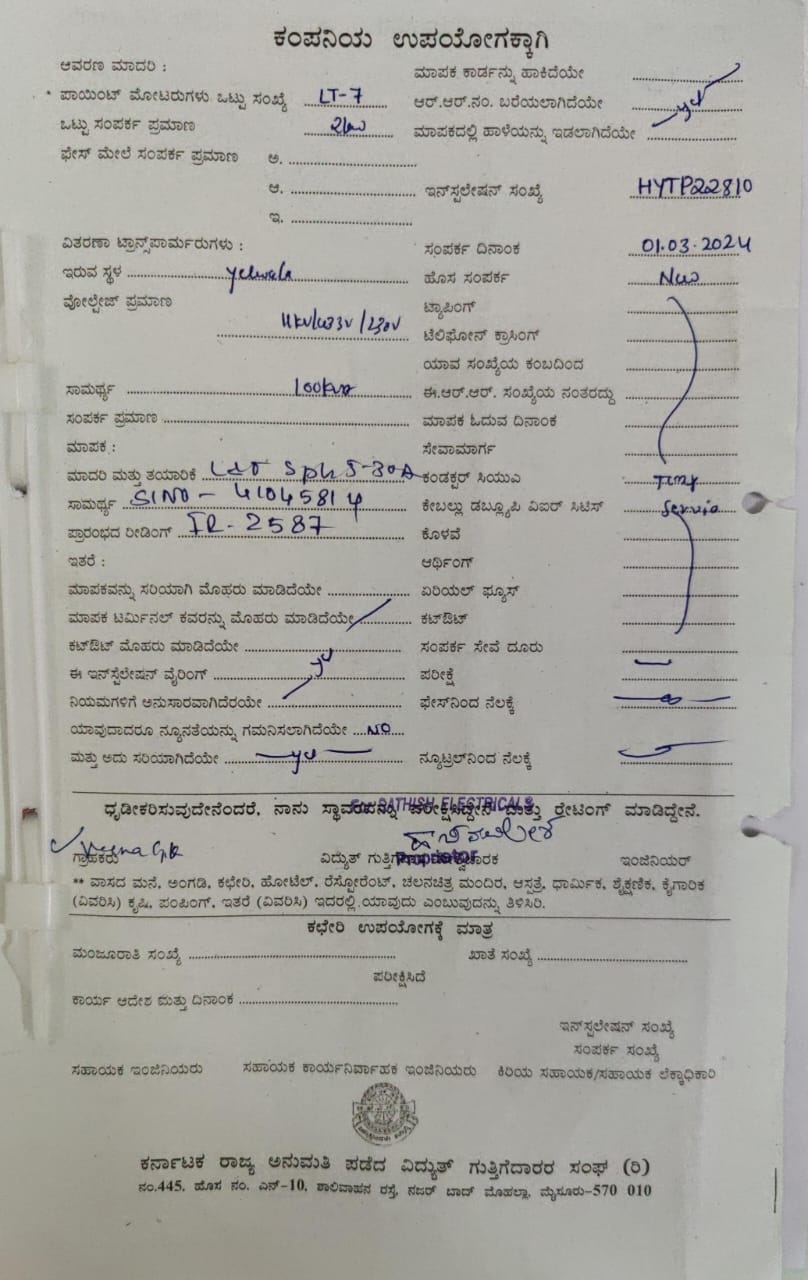 ಕಂಪನಿಯ ಉಪಯೋಗಕ್ಕಾಗಿ
ಆವರಣ ಮಾದರಿ : ಮಾಪಕ ಕಾರ್ಡನ್ನು ಹಾಕಿದೆಯೇ
* ಪಾಯಿಂಟ್ ಮೋಟರುಗಳು ಒಟ್ಟು ಸಂಖ್ಯೆ LT-7 ಆರ್.ಆರ್.ನಂ. ಬರೆಯಲಾಗಿದೆಯೇ
ಒಟ್ಟು ಸಂಪರ್ಕ ಪ್ರಮಾಣ ಮಾಪಕದಲ್ಲಿ ಹಾಳೆಯನ್ನು ಇಡಲಾಗಿದೆಯೇ
ಫೇಸ್ ಮೇಲೆ ಸಂಪರ್ಕ ಪ್ರಮಾಣ ಅ.
ಆ. ಇನ್‌ಸ್ಟಲೇಷನ್ ಸಂಖ್ಯೆ HYTP22810
ಇ.
ವಿತರಣಾ ಟ್ರಾನ್ಸ್‌ಪಾರ್ಮರುಗಳು : ಸಂಪರ್ಕ ದಿನಾಂಕ 01.03.2024
ಇರುವ ಸ್ಥಳ Yelwala ಹೊಸ ಸಂಪರ್ಕ New
ವೋಲ್ಟೇಜ್ ಪ್ರಮಾಣ 11KV/433V/230V ಟ್ಯಾಪಿಂಗ್
ಟೆಲಿಫೋನ್ ಕ್ರಾಸಿಂಗ್
ಯಾವ ಸಂಖ್ಯೆಯ ಕಂಬದಿಂದ
ಸಾಮರ್ಥ್ಯ 100kva ಈ.ಆರ್.ಆರ್. ಸಂಖ್ಯೆಯ ನಂತರದ್ದು
ಸಂಪರ್ಕ ಪ್ರಮಾಣ ಮಾಪಕ ಓದುವ ದಿನಾಂಕ
ಮಾಪಕ : ಸೇವಾಮಾರ್ಗ
ಮಾದರಿ ಮತ್ತು ತಯಾರಿಕೆ L&T Sph 5-30A ಕಂಡಕ್ಟರ್ ಸಿಯುಎ
ಸಾಮರ್ಥ್ಯ SINO - 41045814 ಕೇಬಲ್ಲು ಡಬ್ಲ್ಯೂಪಿ ವಿಐರ್ ಸಿಟಿಸ್ Service
ಪ್ರಾರಂಭದ ರೀಡಿಂಗ್ IR - 2587 ಕೊಳವೆ
ಇತರೆ : ಆರ್ಥಿಂಗ್
ಮಾಪಕವನ್ನು ಸರಿಯಾಗಿ ಮೊಹರು ಮಾಡಿದೆಯೇ ಏರಿಯಲ್ ಫ್ಯೂಸ್
ಮಾಪಕ ಟರ್ಮಿನಲ್ ಕವರನ್ನು ಮೊಹರು ಮಾಡಿದೆಯೇ ಕಟ್‌ಔಟ್
ಕಟ್‌ಔಟ್ ಮೊಹರು ಮಾಡಿದೆಯೇ ಸಂಪರ್ಕ ಸೇವೆ ದೂರು
ಈ ಇನ್‌ಸ್ಟಲೇಷನ್ ವೈರಿಂಗ್ ಪರೀಕ್ಷೆ
ನಿಯಮಗಳಿಗೆ ಅನುಸಾರವಾಗಿದೆರಯೇ ಫೇಸ್‌ನಿಂದ ನೆಲಕ್ಕೆ
ಯಾವುದಾದರೂ ನ್ಯೂನತೆಯನ್ನು ಗಮನಿಸಲಾಗಿದೆಯೇ NO
ಮತ್ತು ಅದು ಸರಿಯಾಗಿದೆಯೇ ನ್ಯೂಟ್ರಲ್‌ನಿಂದ ನೆಲಕ್ಕೆ
For SATHISH ELECTRICALS
ಧೃಡೀಕರಿಸುವುದೇನೆಂದರೆ, ನಾನು ಸ್ಥಾವರವನ್ನು ಪರೀಕ್ಷಿಸಿದ್ದೇನೆ ಮತ್ತು ರೇಟಿಂಗ್ ಮಾಡಿದ್ದೇನೆ.
ಗ್ರಾಹಕರು ವಿದ್ಯುತ್ Proprietor ಇಂಜಿನಿಯರ್
** ವಾಸದ ಮನೆ, ಅಂಗಡಿ, ಕಛೇರಿ, ಹೋಟೆಲ್, ರೆಸ್ಟೋರೆಂಟ್, ಚಲನಚಿತ್ರ ಮಂದಿರ, ಆಸ್ಪತ್ರೆ, ಧಾರ್ಮಿಕ, ಶೈಕ್ಷಣಿಕ, ಕೈಗಾರಿಕ
(ವಿವರಿಸಿ) ಕೃಷಿ, ಪಂಪಿಂಗ್, ಇತರೆ (ವಿವರಿಸಿ) ಇದರಲ್ಲಿ ಯಾವುದು ಎಂಬುವುದನ್ನು ತಿಳಿಸಿರಿ.
ಕಛೇರಿ ಉಪಯೋಗಕ್ಕೆ ಮಾತ್ರ
ಮಂಜೂರಾತಿ ಸಂಖ್ಯೆ ಖಾತೆ ಸಂಖ್ಯೆ
ಪರೀಕ್ಷಿಸಿದೆ
ಕಾರ್ಯ ಆದೇಶ ಮತ್ತು ದಿನಾಂಕ
ಇನ್‌ಸ್ಟಲೇಷನ್ ಸಂಖ್ಯೆ
ಸಂಪರ್ಕ ಸಂಖ್ಯೆ
ಸಹಾಯಕ ಇಂಜಿನಿಯರು ಸಹಾಯಕ ಕಾರ್ಯನಿರ್ವಾಹಕ ಇಂಜಿನಿಯರು ಕಿರಿಯ ಸಹಾಯಕ/ಸಹಾಯಕ ಲೆಕ್ಕಾಧಿಕಾರಿ
ಕರ್ನಾಟಕ ರಾಜ್ಯ ಅನುಮತಿ ಪಡೆದ ವಿದ್ಯುತ್ ಗುತ್ತಿಗೆದಾರರ ಸಂಘ (ರಿ)
ನಂ.445, ಹೊಸ ನಂ. ಎನ್-10, ಶಾಲಿವಾಹನ ರಸ್ತೆ, ನಜರ್ ಬಾದ್ ಮೊಹಲ್ಲಾ, ಮೈಸೂರು-570 010